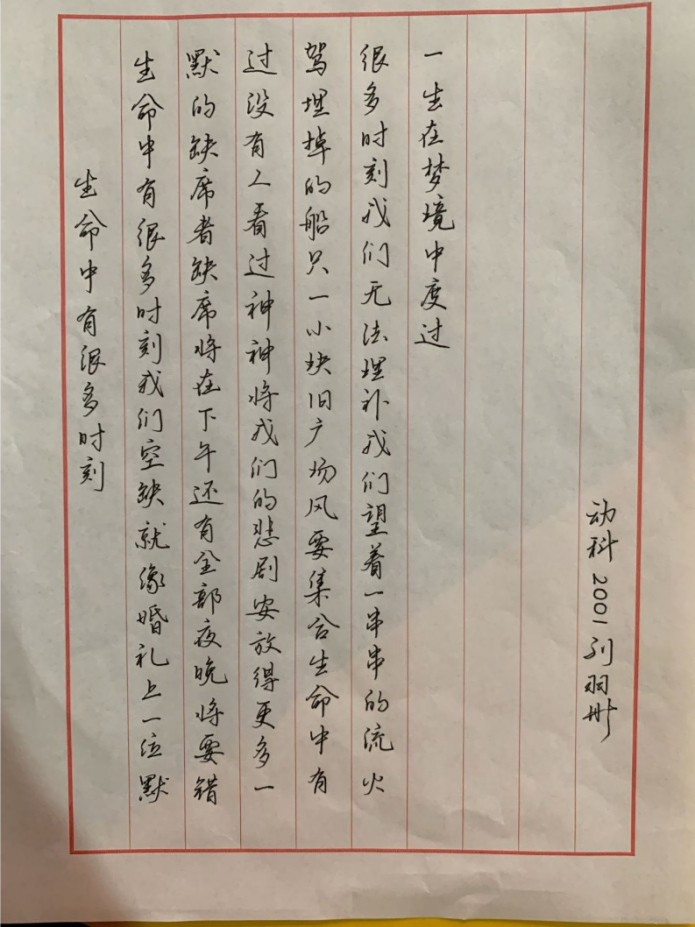 生命中有很多时刻
生命中有很多时刻我们空缺就像婚礼上一位默
默的缺席者缺席将在下午还有全部夜晚将要错
过没有人看过神神将我们的悲剧安放得更多一
驾埋掉的船只一小块旧广场风要集合生命中有
很多时刻我们无法埋补我们望着一串串的流火
一生在梦境中度过
动科2001 羽彬